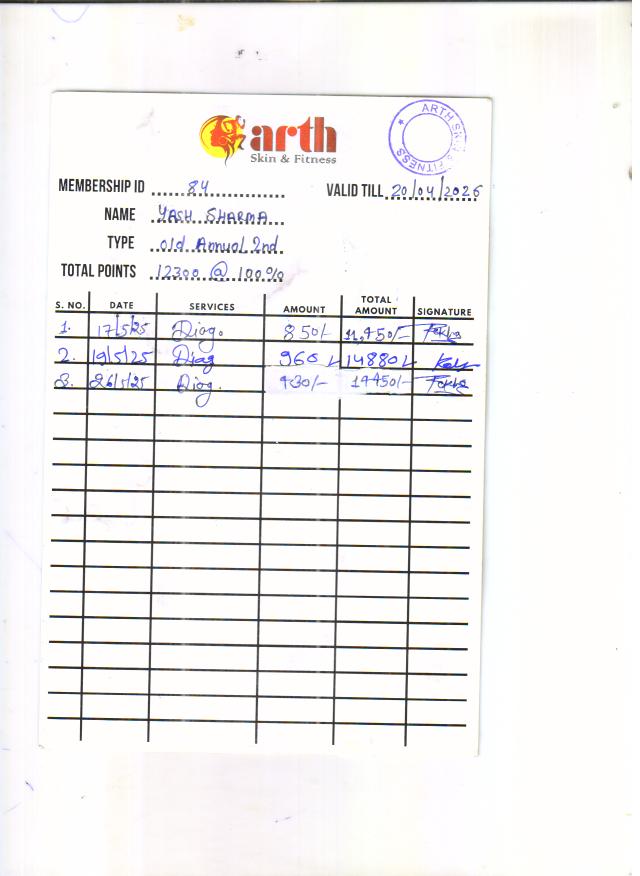 arth
Skin & Fitness
ARTH SKIN & FITNESS
MEMBERSHIP ID 84
VALID TILL 20/04/2026
NAME YASH SHARMA
TYPE old Annual 2nd
TOTAL POINTS 12300 @ 100%
S. NO. DATE SERVICES AMOUNT TOTAL AMOUNT SIGNATURE
1. 17/5/25 Diag. 850/-
2. 19/5/25 Diag 960/- 14880/-
3. 26/5/25 Diag. 430/- 14450/-